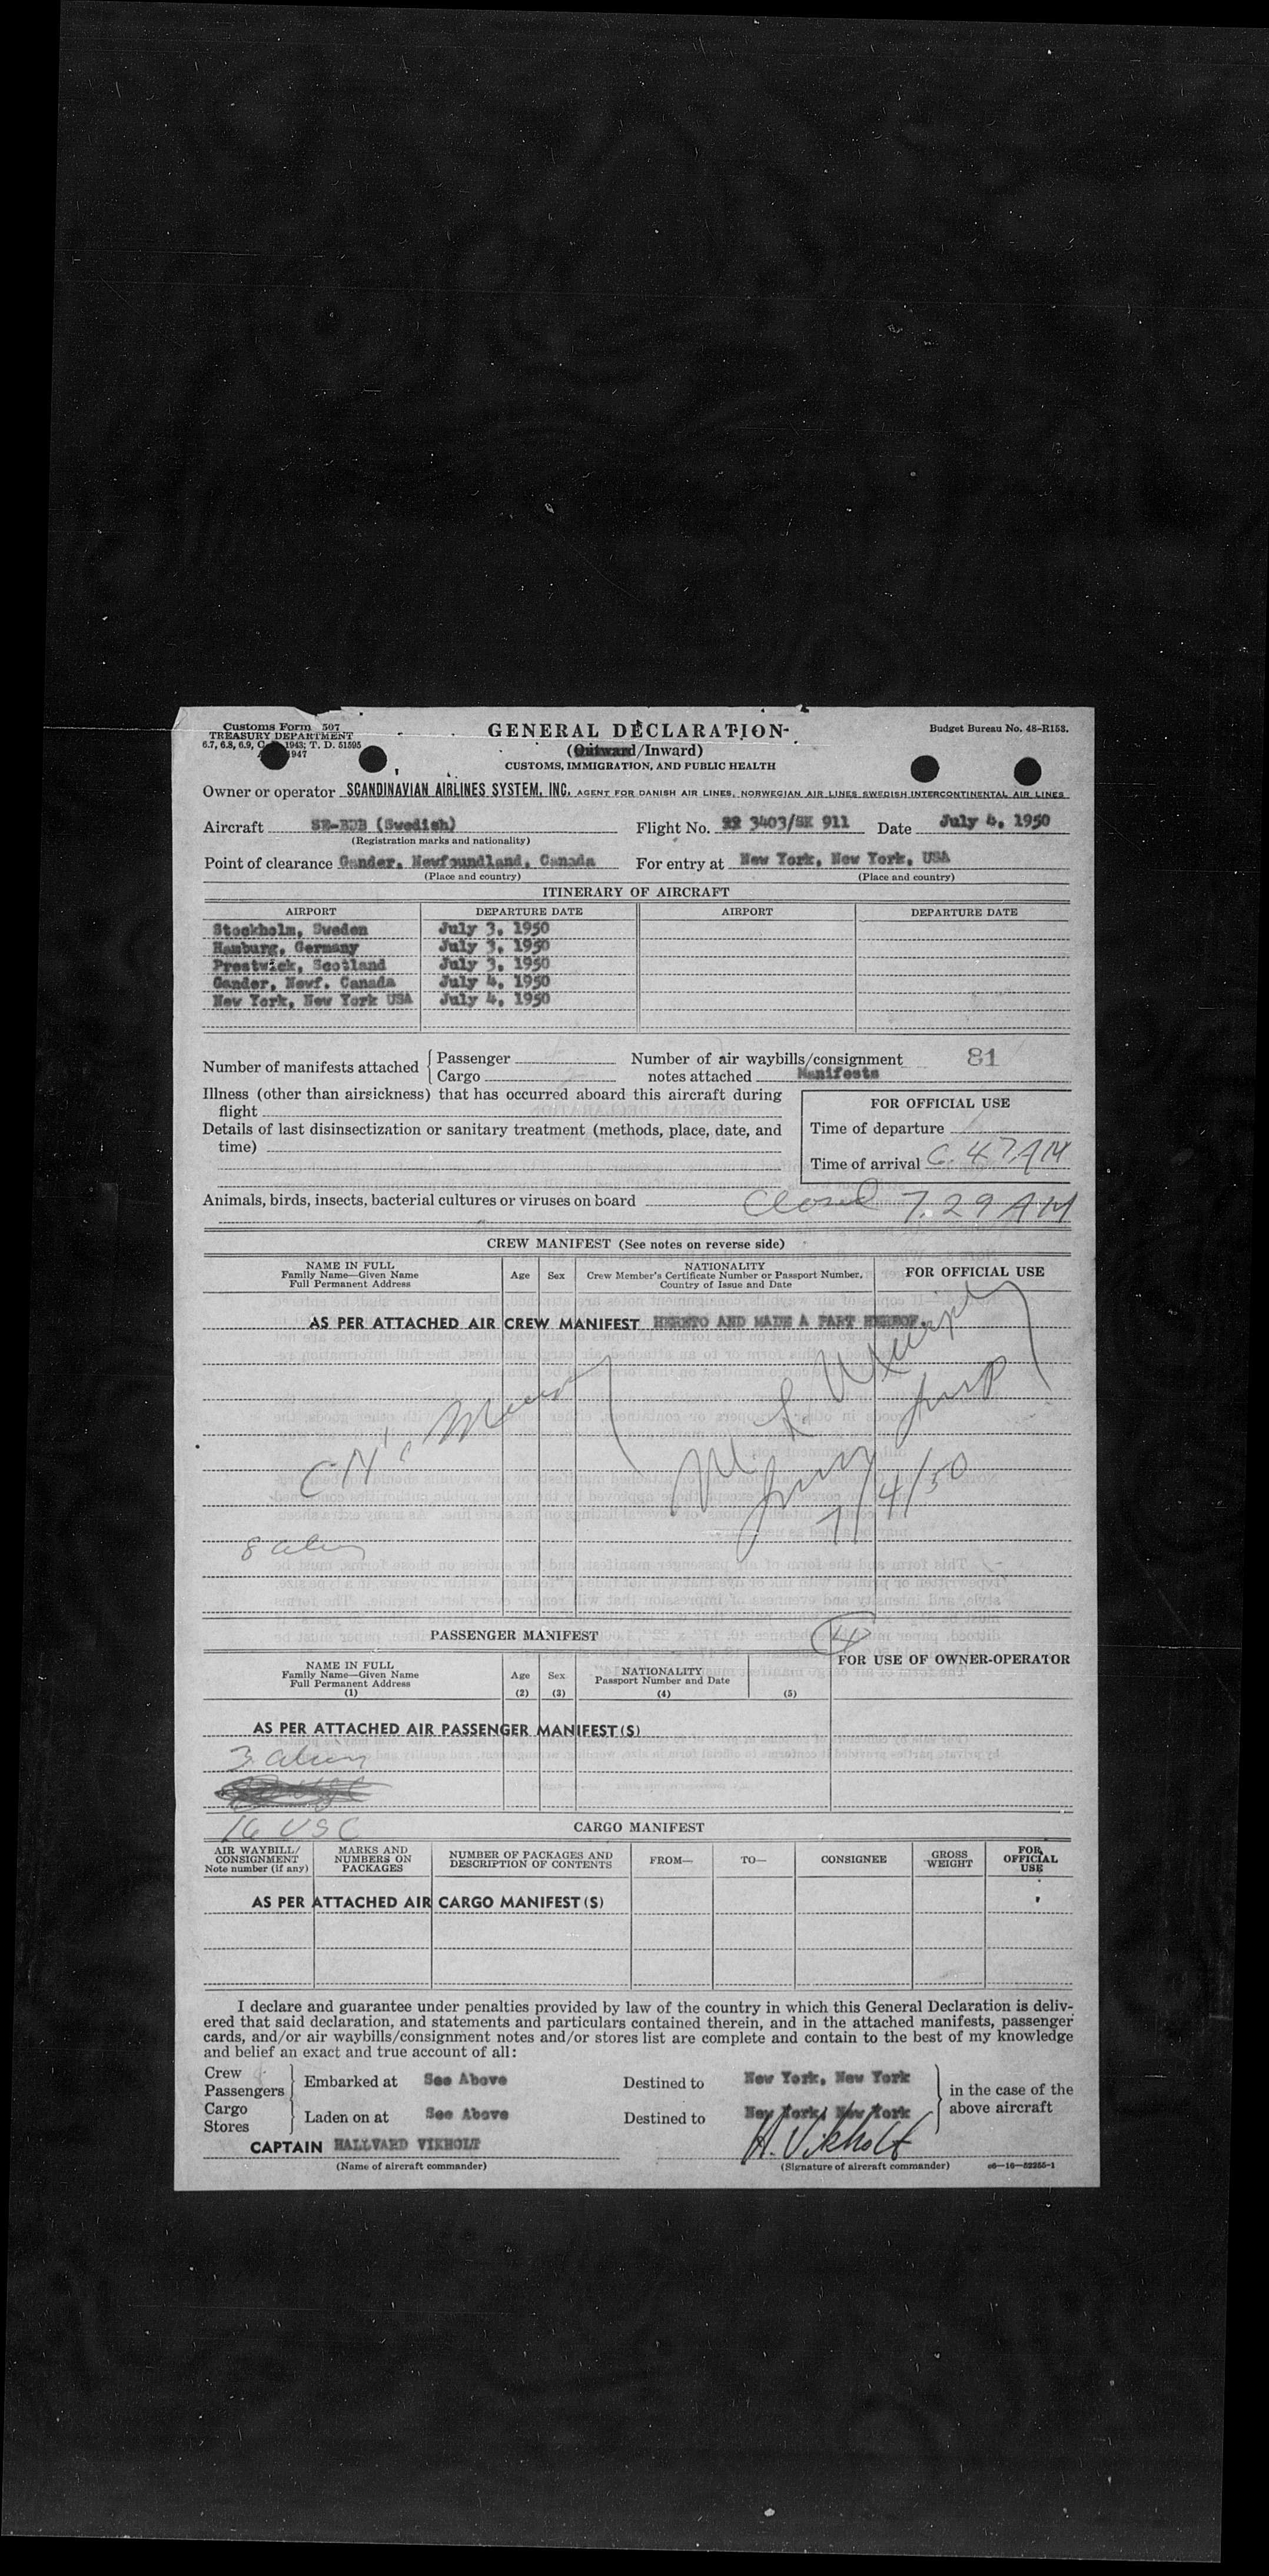 Customs Form 507
TREASURY DEPARTMENT
6.7, 6.8, 6.9, 1943; T. D. 51595
1947
GENERAL DECLARATION
(Outward/Inward)
CUSTOMS, IMMIGRATION, AND PUBLIC HEALTH
Budget Bureau No. 48-R153.
Owner or operator SCANDINAVIAN AIRLINES SYSTEM, INC. AGENT FOR DANISH AIR LINES, NORWEGIAN AIR LINES SWEDISH INTERCONTINENTAL AIR LINES
Aircraft SE-BDB (Swedish) Flight No. 22 3403/SK 911 Date July 4, 1950
(Registration marks and nationality)
Point of clearance Gander, Newfoundland, Canada For entry at New York, New York, USA
(Place and country) (Place and country)
ITINERARY OF AIRCRAFT
AIRPORT DEPARTURE DATE AIRPORT DEPARTURE DATE
Stockholm, Sweden July 3, 1950
Hamburg, Germany July 3, 1950
Prestwick, Scotland July 3, 1950
Gander, Newf. Canada July 4, 1950
New York, New York USA July 4, 1950
Number of manifests attached { Passenger Number of air waybills/consignment 81
Cargo notes attached Manifests
Illness (other than airsickness) that has occurred aboard this aircraft during
flight
FOR OFFICIAL USE
Details of last disinsectization or sanitary treatment (methods, place, date, and
time)
Time of departure
Time of arrival 6.47 AM
Animals, birds, insects, bacterial cultures or viruses on board Closed 7.29 AM
CREW MANIFEST (See notes on reverse side)
NAME IN FULL
Family Name—Given Name
Full Permanent Address
Age Sex
NATIONALITY
Crew Member's Certificate Number or Passport Number,
Country of Issue and Date
FOR OFFICIAL USE
AS PER ATTACHED AIR CREW MANIFEST HERETO AND MADE A PART HEREOF.
7/4/50
8 alien
PASSENGER MANIFEST
NAME IN FULL
Family Name—Given Name
Full Permanent Address
(1)
Age
(2)
Sex
(3)
NATIONALITY
Passport Number and Date
(4) (5)
FOR USE OF OWNER-OPERATOR
AS PER ATTACHED AIR PASSENGER MANIFEST(S)
3 alien
16 USC
CARGO MANIFEST
AIR WAYBILL/
CONSIGNMENT
Note number (if any)
MARKS AND
NUMBERS ON
PACKAGES
NUMBER OF PACKAGES AND
DESCRIPTION OF CONTENTS
FROM— TO— CONSIGNEE
GROSS
WEIGHT
FOR
OFFICIAL
USE
AS PER ATTACHED AIR CARGO MANIFEST(S)
I declare and guarantee under penalties provided by law of the country in which this General Declaration is deliv-
ered that said declaration, and statements and particulars contained therein, and in the attached manifests, passenger
cards, and/or air waybills/consignment notes and/or stores list are complete and contain to the best of my knowledge
and belief an exact and true account of all:
Crew
Passengers } Embarked at See Above Destined to New York, New York
Cargo
Stores } Laden on at See Above Destined to New York, New York
in the case of the
above aircraft
CAPTAIN HALLVARD VIKHOLT H. Vikholt
(Name of aircraft commander) (Signature of aircraft commander) c6—16—52255-1